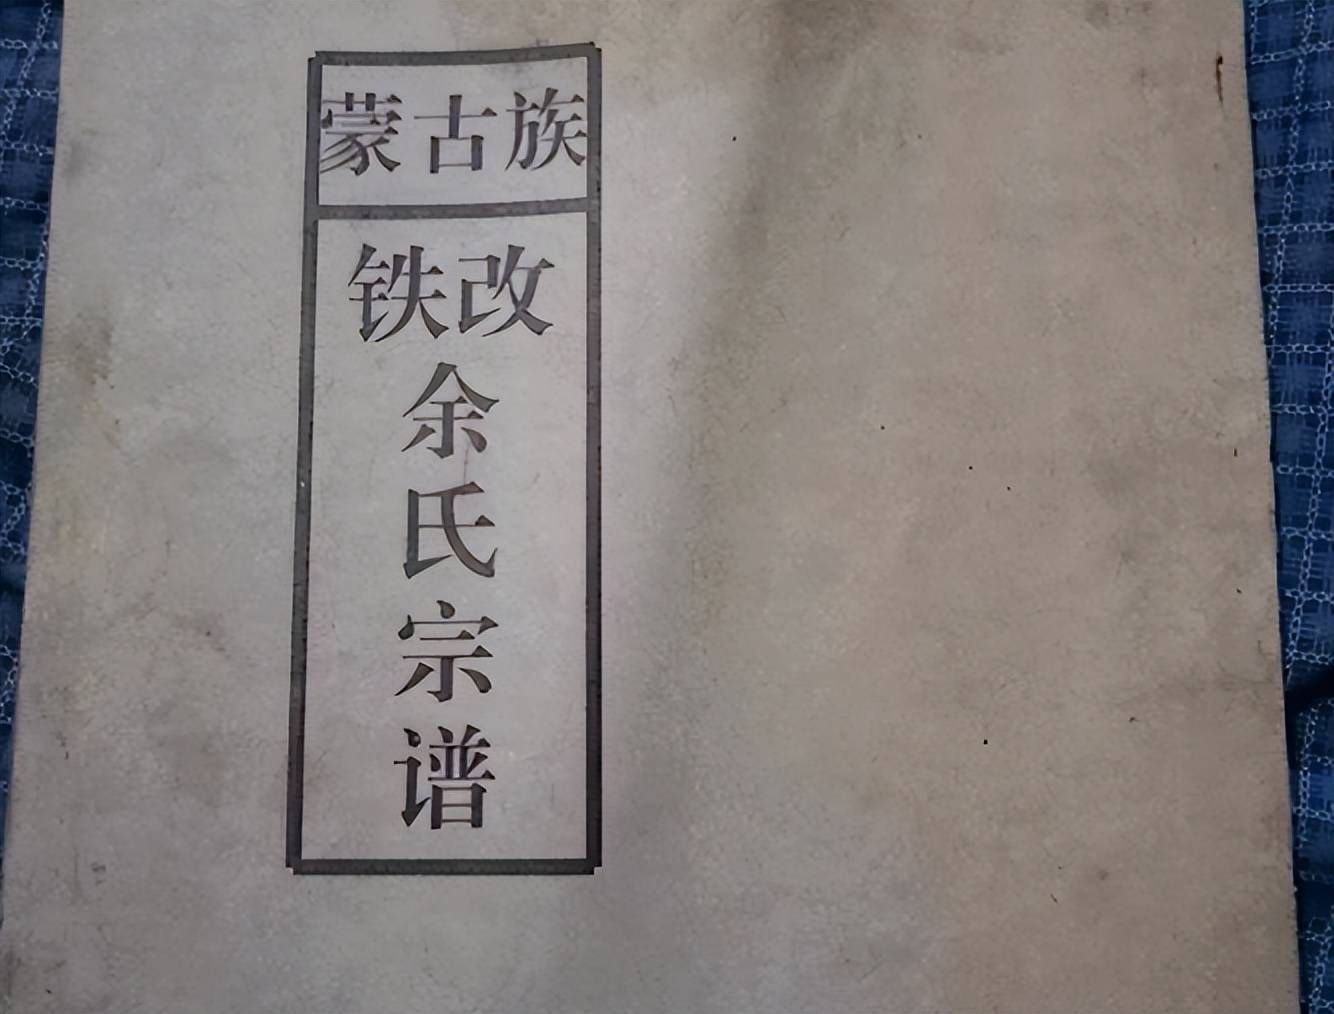 蒙古族
铁改
余
氏
宗
谱